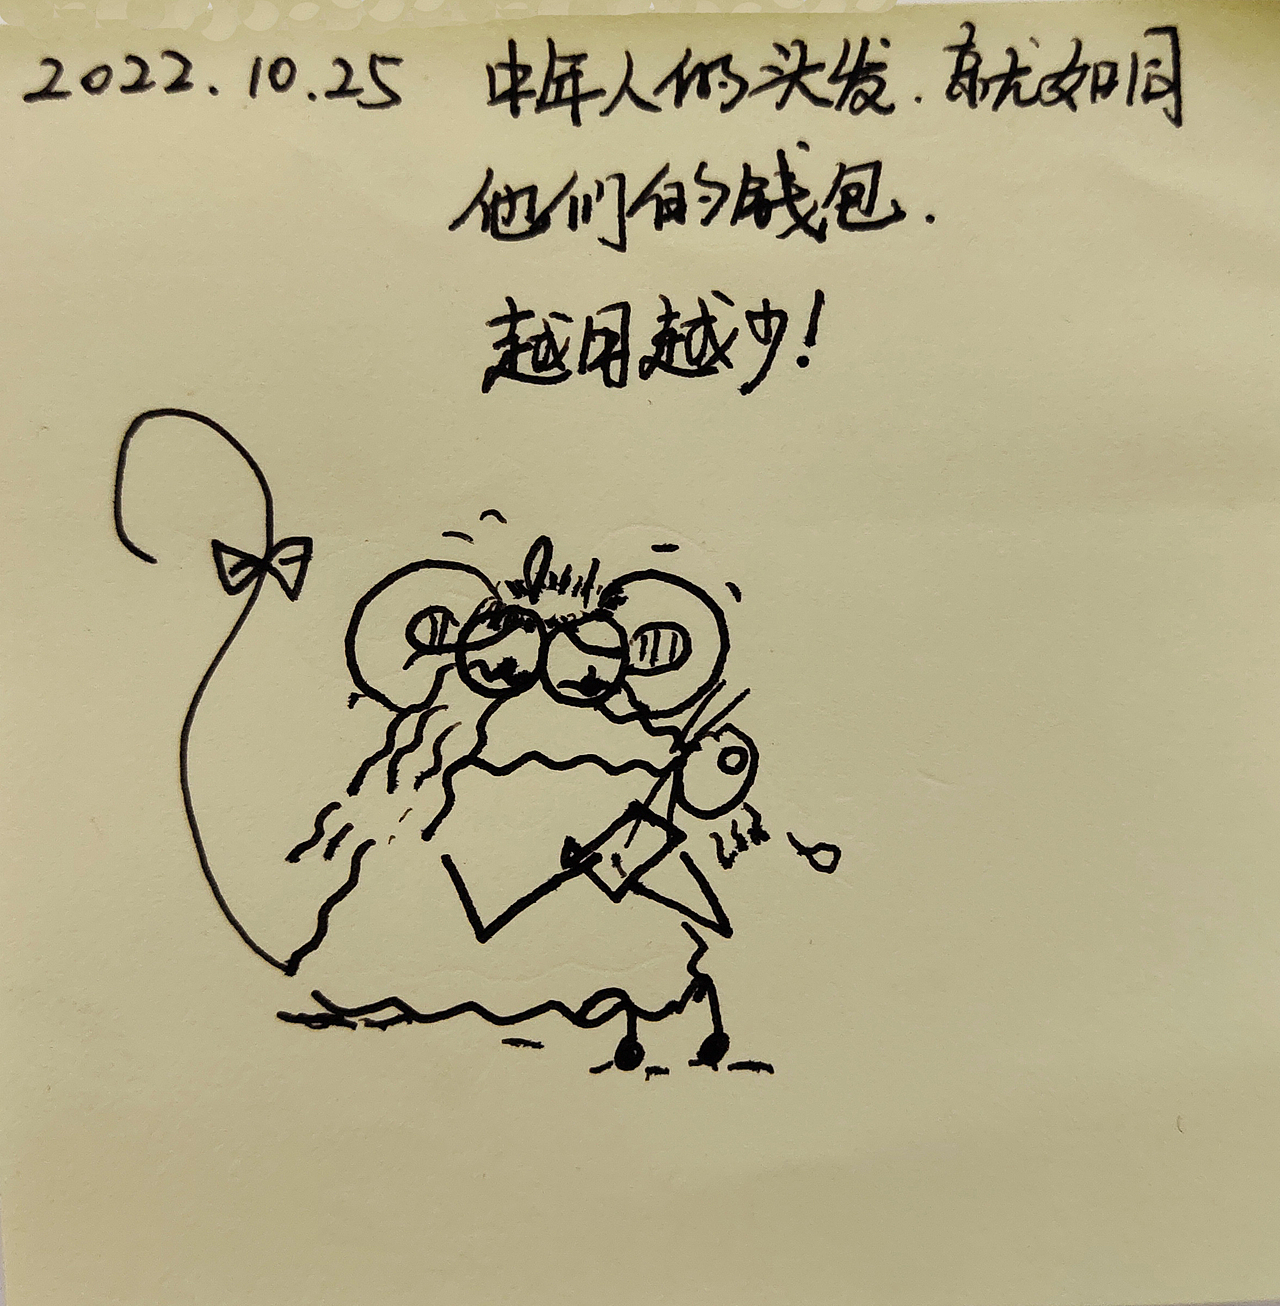 2022.10.25 中年人的头发.就如同
他们的钱包.
越用越少!